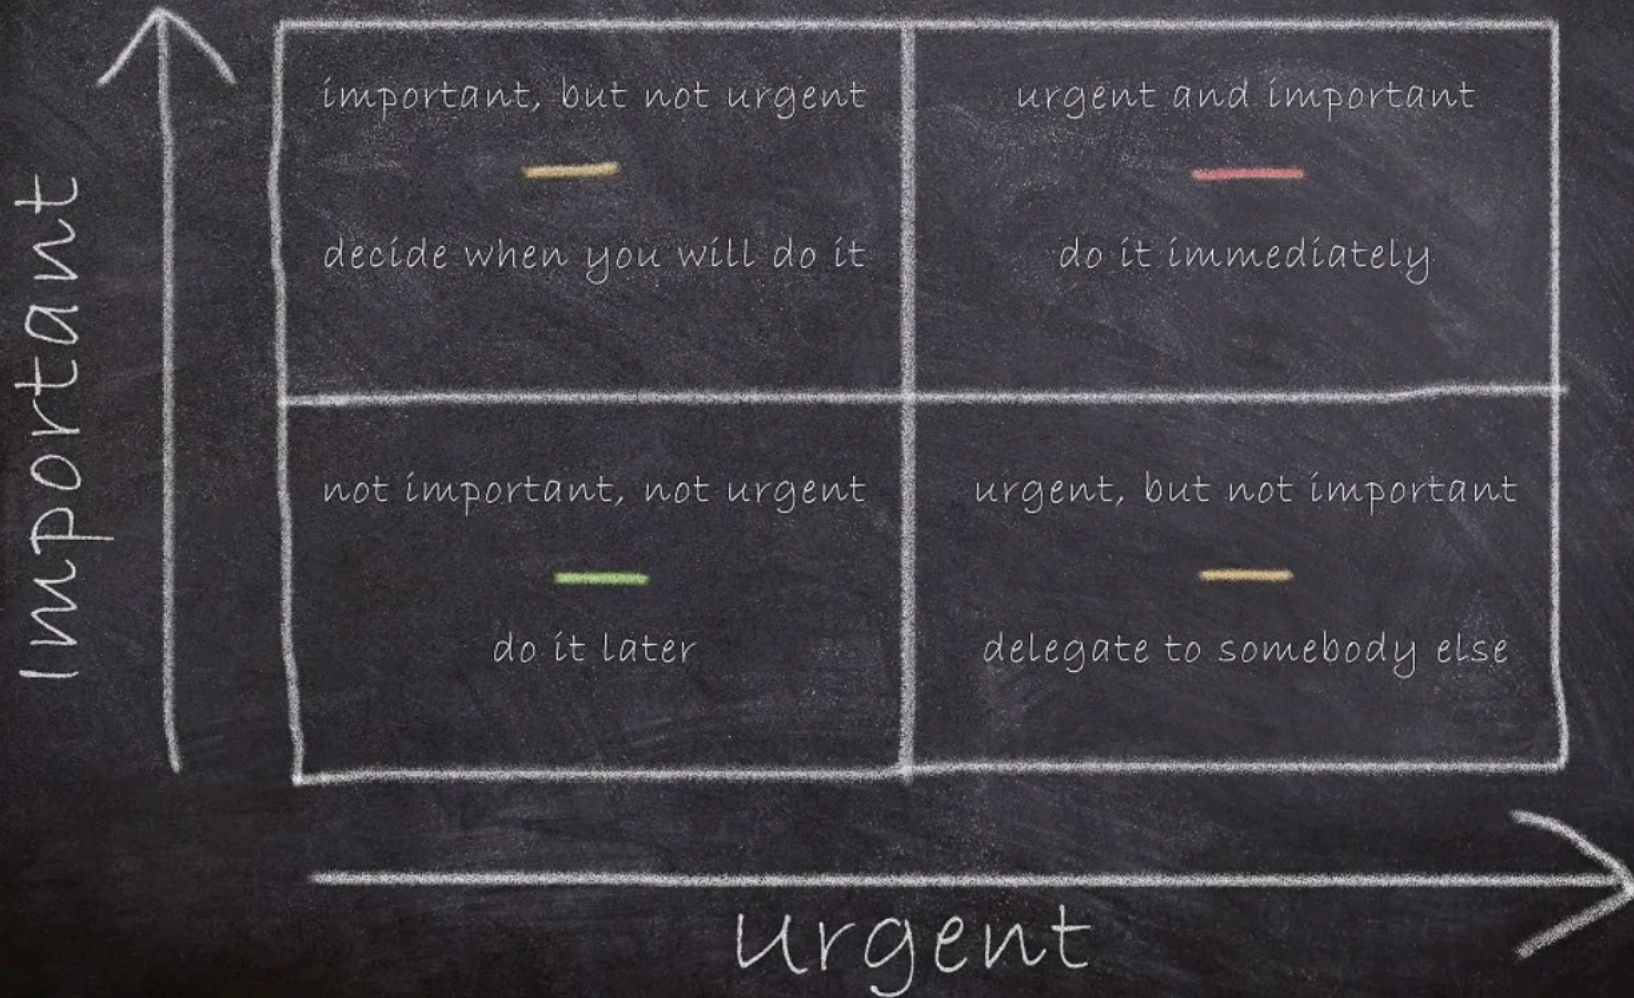 Important
important, but not urgent
decide when you will do it
urgent and important
do it immediately
not important, not urgent
do it later
urgent, but not important
delegate to somebody else
urgent